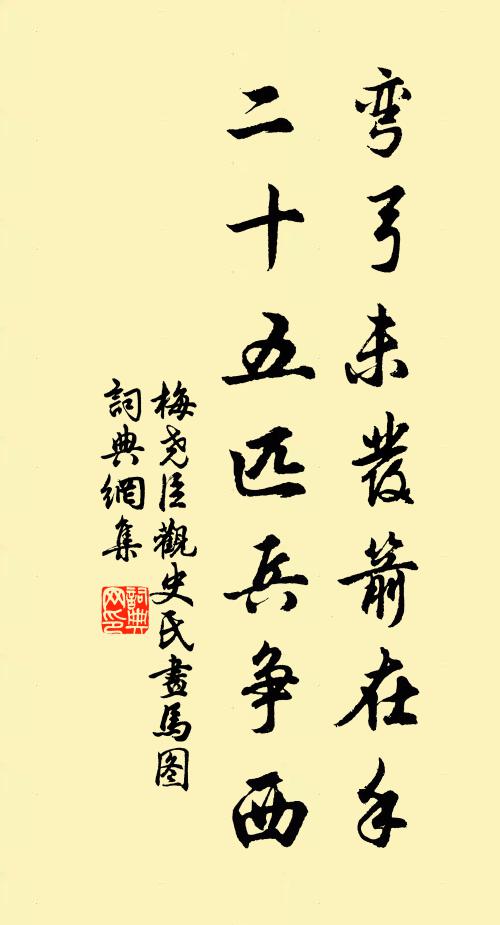 弯弓未發箭在手
二十五匹兵争西
梅尧臣觀史氏畫馬图
詞典網集
詞典
网印